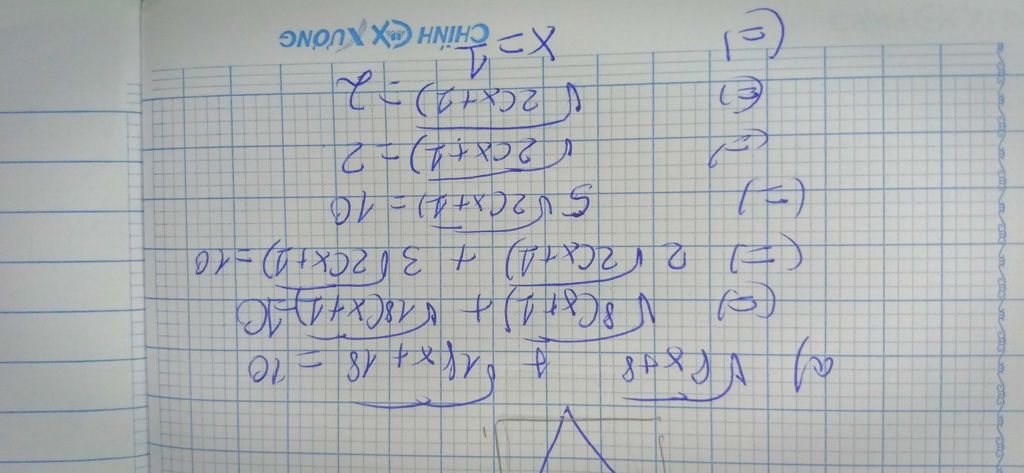 a) √8x+8 + √18x+18 = 10
(=) √8(x+1) + √18(x+1) = 10
(=) 2√2(x+1) + 3√2(x+1) = 10
(=) 5√2(x+1) = 10
(=) √2(x+1) = 2
(=) √2(x+1) = 2
(=) x = 1
CHÍNH XƯỢNG